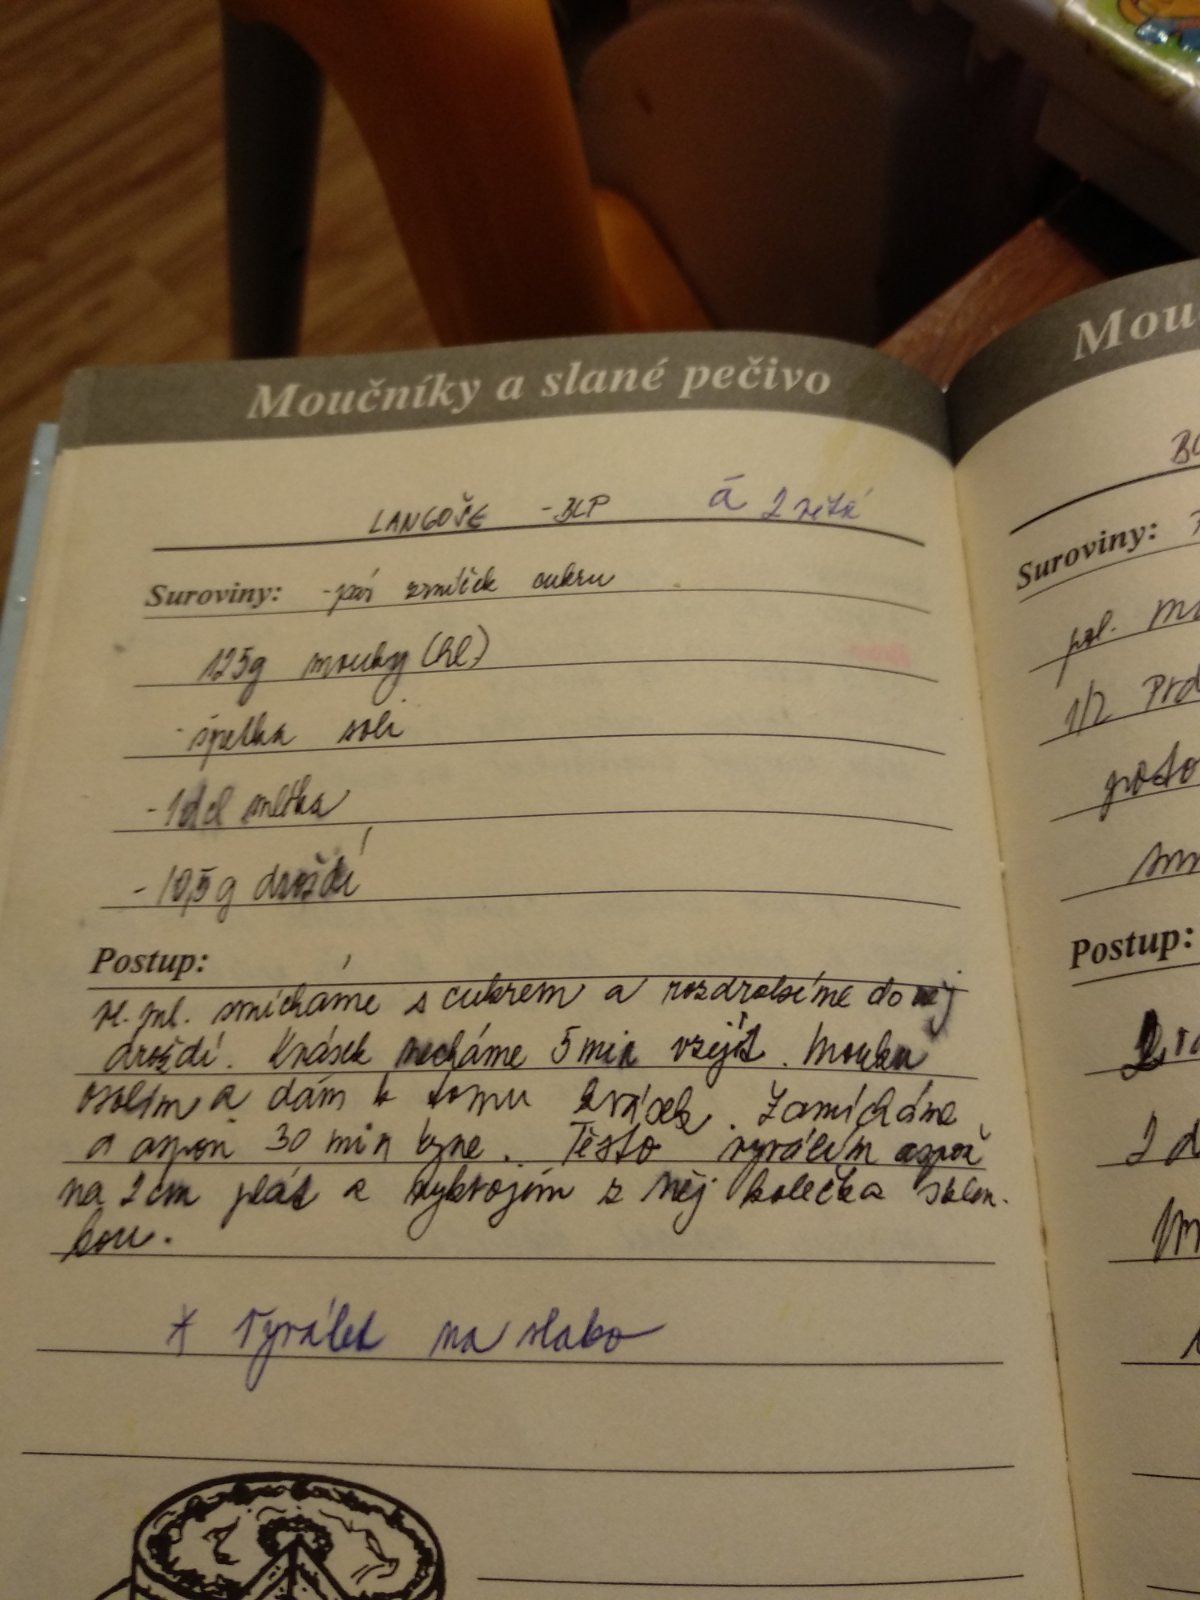 Moučníky a slané pečivo
LANGOŠE - BLP á 2
Suroviny: - pár zrníček cukru
125g mouky (hl.)
- špetka soli
- 1dcl mléka
- 10,5g droždí
Postup:
vl. ml. smícháme s cukrem a rozdrobíme do něj
droždí. Kvásek necháme 5 min vzejít. Mouku
osolím a dám k tomu kvásek. Zamícháme
a aspoň 30 min kyne. Těsto vyválím aspoň
na 2cm plát a vykrojím z něj kolečka sklen-
kou.
* Vyválet na slabo
Mou
Suroviny:
pol.
1/2
Postup: